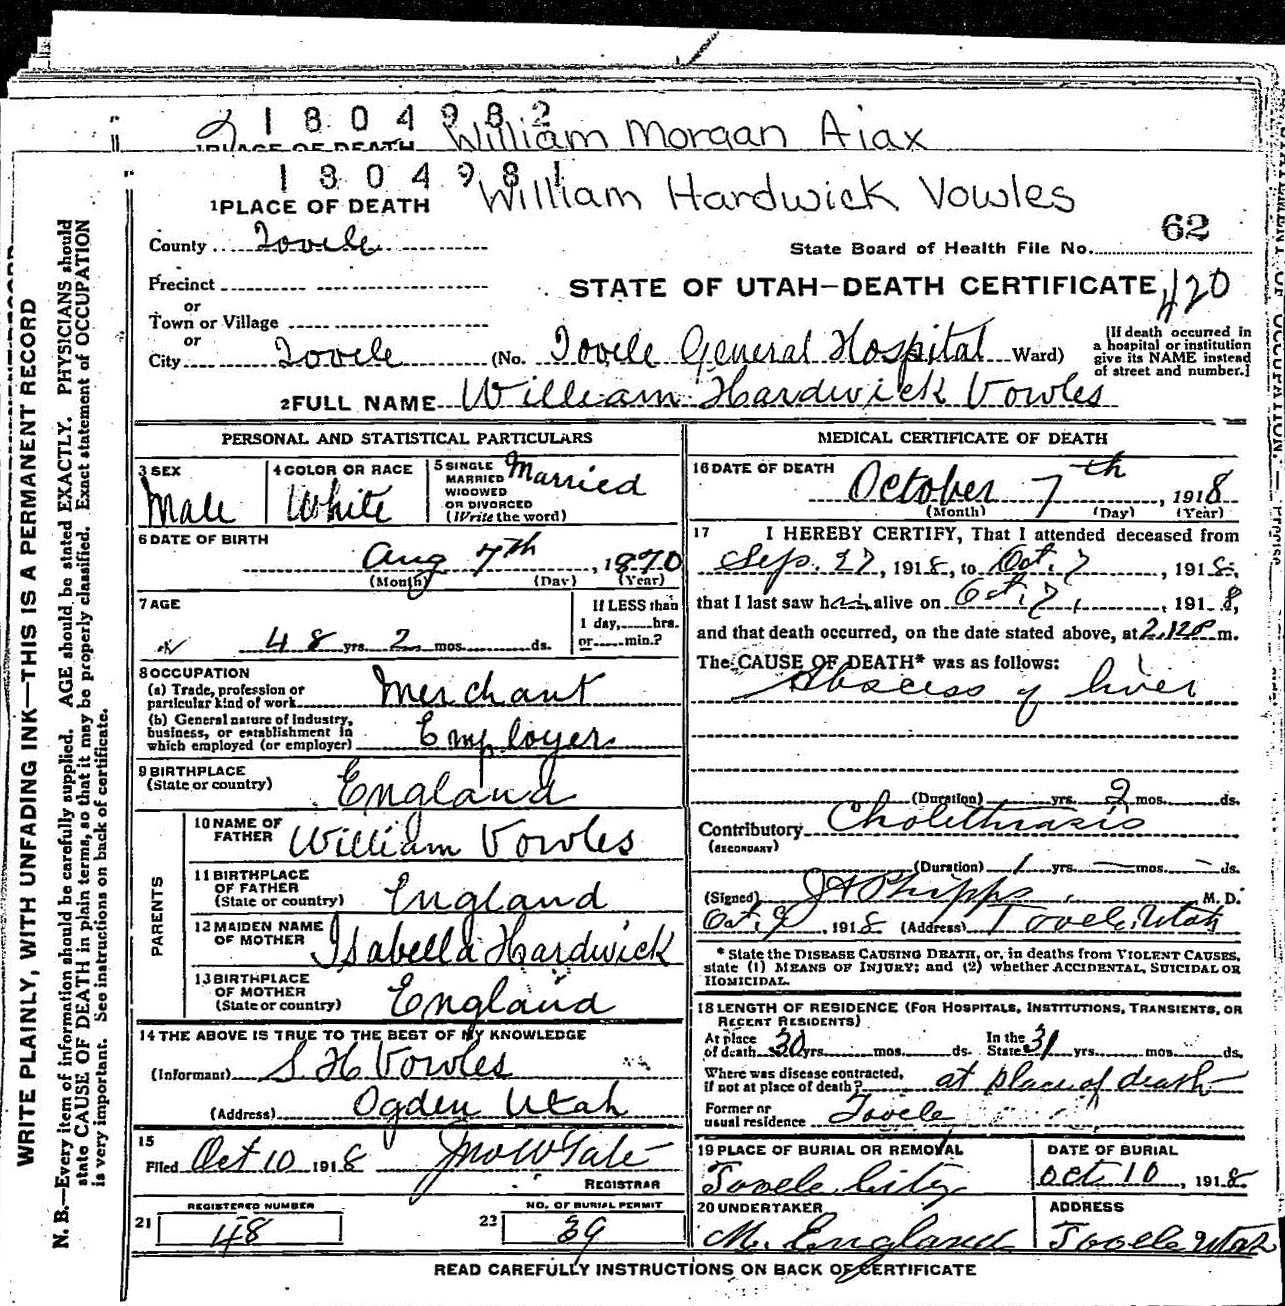 2 1804982 William Morgan Ajax
1PLACE OF DEATH
1804981 William Hardwick Vowles
1PLACE OF DEATH
County Tooele
62
State Board of Health File No.
Precinct
STATE OF UTAH—DEATH CERTIFICATE 420
or
Town or Village
or
City Tooele (No. Tooele General Hospital Ward)
[If death occurred in
a hospital or institution
give its NAME instead
of street and number.]
2FULL NAME William Hardwick Vowles
PERSONAL AND STATISTICAL PARTICULARS
3 SEX
Male
4 COLOR OR RACE
White
5 SINGLE
MARRIED
WIDOWED
OR DIVORCED
(Write the word)
Married
6 DATE OF BIRTH
Aug 7th, 1870
(Month) (Day) (Year)
7 AGE
48 yrs. 2 mos. ds.
If LESS than
1 day, hrs.
or min.?
8 OCCUPATION
(a) Trade, profession or
particular kind of work Merchant
(b) General nature of industry,
business, or establishment in
which employed (or employer) Employer
9 BIRTHPLACE
(State or country) England
PARENTS
10 NAME OF
FATHER William Vowles
11 BIRTHPLACE
OF FATHER
(State or country) England
12 MAIDEN NAME
OF MOTHER Isabella Hardwick
13 BIRTHPLACE
OF MOTHER
(State or country) England
14 THE ABOVE IS TRUE TO THE BEST OF MY KNOWLEDGE
(Informant) S. H. Vowles
(Address) Ogden Utah
15
Filed Oct 10 1918 Jno W Tate
REGISTRAR
REGISTERED NUMBER
21 48
NO. OF BURIAL PERMIT
23 39
MEDICAL CERTIFICATE OF DEATH
16 DATE OF DEATH
October 7th, 1918
(Month) (Day) (Year)
17 I HEREBY CERTIFY, That I attended deceased from
Sep. 27, 1918, to Oct. 7, 1918,
that I last saw him alive on Oct. 7, 1918,
and that death occurred, on the date stated above, at 2.12P m.
The CAUSE OF DEATH* was as follows:
Abscess of liver
(Duration) yrs. 2 mos. ds.
Contributory Cholithiasis
(SECONDARY)
(Duration) 1 yrs. — mos. — ds.
(Signed) J A Phipps, M. D.
Oct. 9, 1918 (Address) Tooele, Utah
* State the DISEASE CAUSING DEATH, or, in deaths from VIOLENT CAUSES,
state (1) MEANS OF INJURY; and (2) whether ACCIDENTAL, SUICIDAL OR
HOMICIDAL.
18 LENGTH OF RESIDENCE (FOR HOSPITALS, INSTITUTIONS, TRANSIENTS, OR
RECENT RESIDENTS)
At place
of death 30 yrs. mos. ds. In the
State 31 yrs. mos. ds.
Where was disease contracted,
if not at place of death? at place of death
Former or
usual residence Tooele
19 PLACE OF BURIAL OR REMOVAL
Tooele City
DATE OF BURIAL
Oct. 10, 1918
20 UNDERTAKER
M. England
ADDRESS
Tooele Utah
READ CAREFULLY INSTRUCTIONS ON BACK OF CERTIFICATE
WRITE PLAINLY, WITH UNFADING INK—THIS IS A PERMANENT RECORD
N. B.—Every item of information should be carefully supplied. AGE should be stated EXACTLY. PHYSICIANS should
state CAUSE OF DEATH in plain terms, so that it may be properly classified. Exact statement of OCCUPATION
is very important. See instructions on back of certificate.